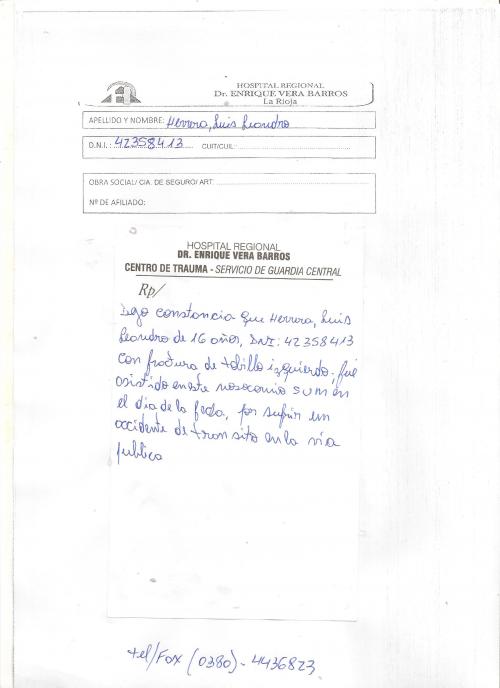 HOSPITAL REGIONAL
Dr. ENRIQUE VERA BARROS
La Rioja
APELLIDO Y NOMBRE: Herrera, Luis Leandro
D.N.I. : 42358413 CUIT/CUIL:
OBRA SOCIAL/ CIA. DE SEGURO/ ART:
Nº DE AFILIADO:
HOSPITAL REGIONAL
DR. ENRIQUE VERA BARROS
CENTRO DE TRAUMA - SERVICIO DE GUARDIA CENTRAL
Rp/
Dejo constancia que Herrera, Luis
Leandro de 16 años, DNI: 42358413
con fractura de tobillo izquierdo, fue
asistido en este nosocomio en
el dia de la fecha, por sufrir un
accidente de transito en la via
publica
tel/Fax (0380) - 4436823